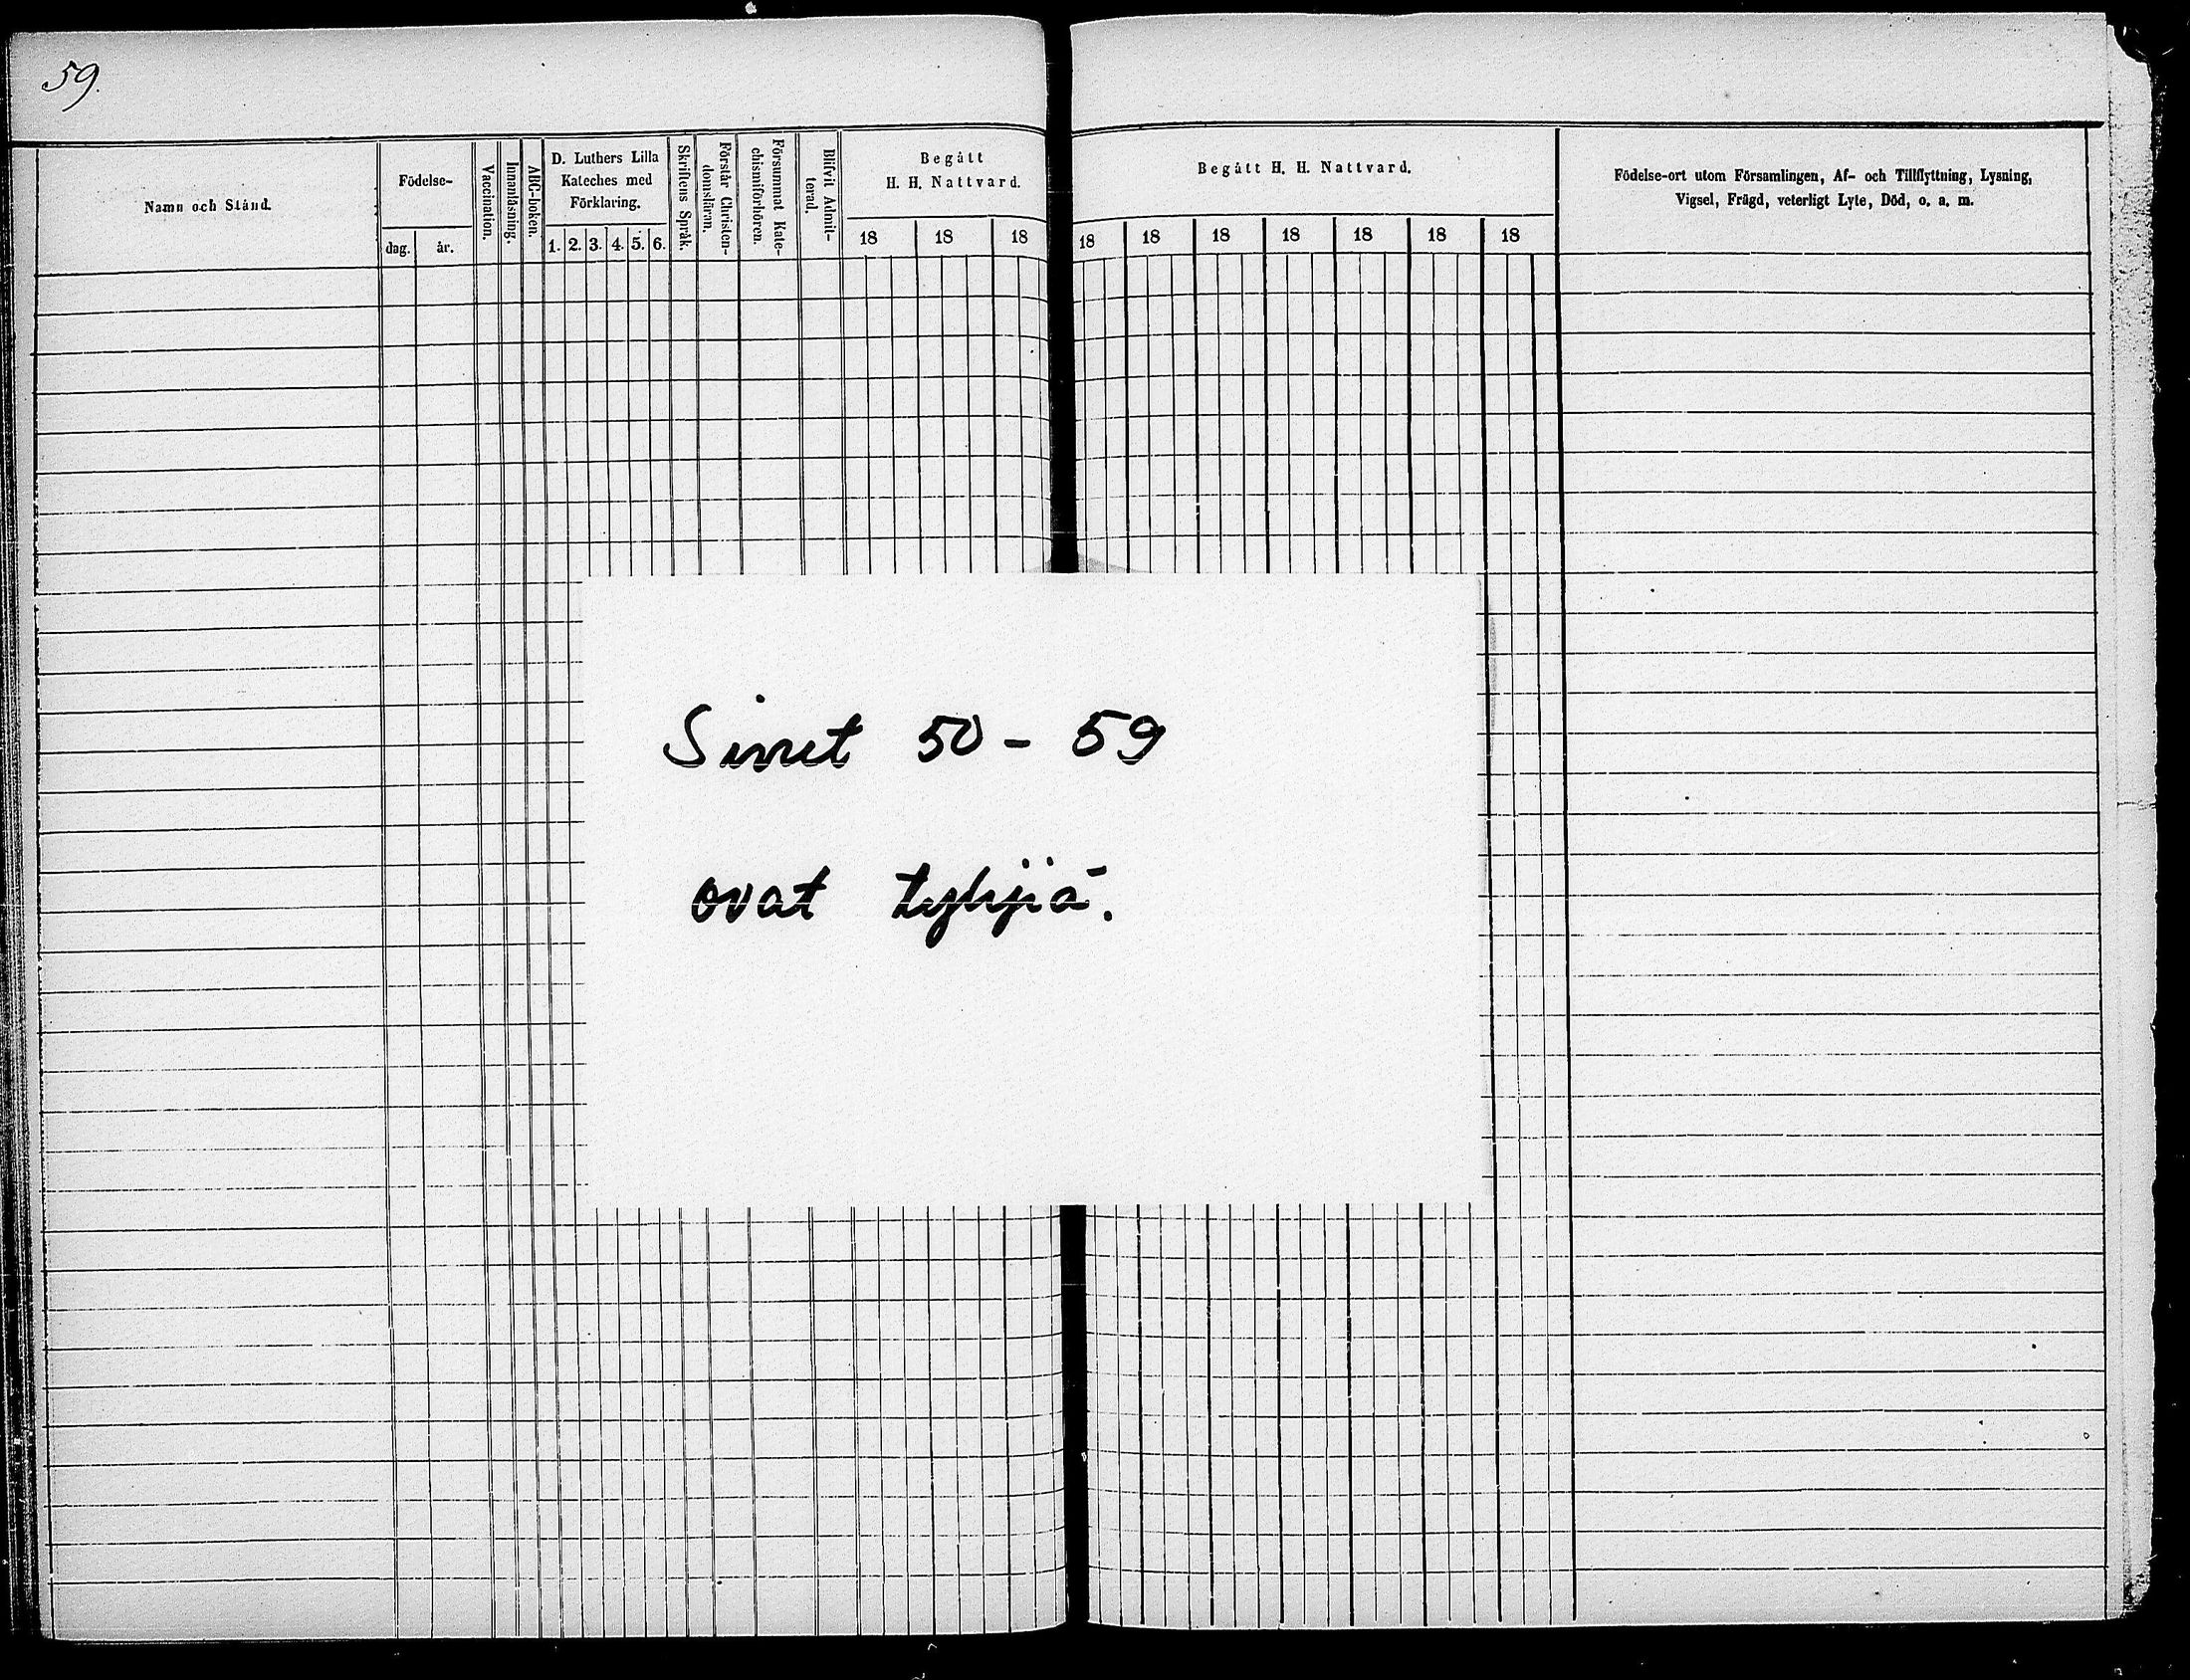 59.
Namn och Stånd.
Födelse-
dag. år.
Vaccination.
Innanläsning.
ABC-boken.
D. Luthers Lilla
Kateches med
Förklaring.
1. 2. 3. 4. 5. 6.
Skriftens Språk.
Förstår Christen-
domsläran.
Försummat Kate-
chismiförhören.
Blifvit Admit-
terad.
Begått
H. H. Nattvard.
18 18 18
Begått H. H. Nattvard.
18 18 18 18 18 18 18
Födelse-ort utom Församlingen, Af- och Tillflyttning, Lysning,
Vigsel, Frägd, veterligt Lyte, Död, o. a. m.
Sivut 50 - 59
ovat tyhjiä.